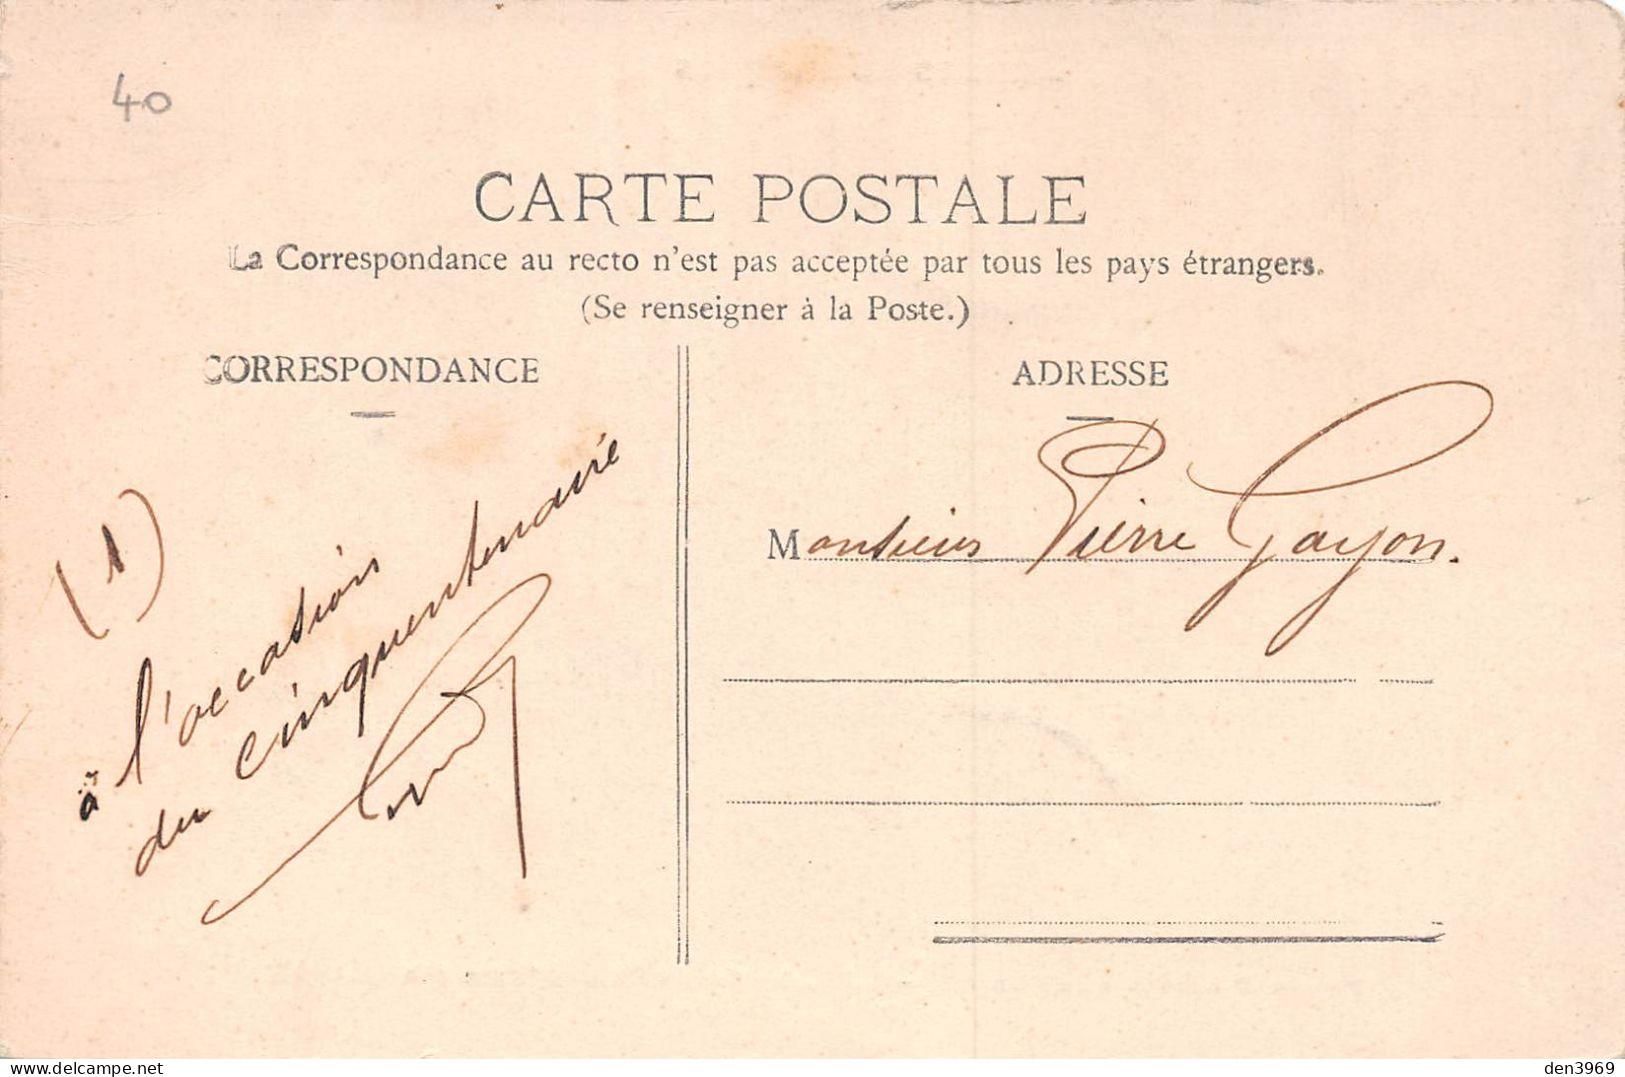 40
CARTE POSTALE
La Correspondance au recto n'est pas acceptée par tous les pays étrangers.
(Se renseigner à la Poste.)
CORRESPONDANCE
ADRESSE
(1)
à l'occasion
du cinquentenaire
Monsieur Pierre Gayon.
den3969